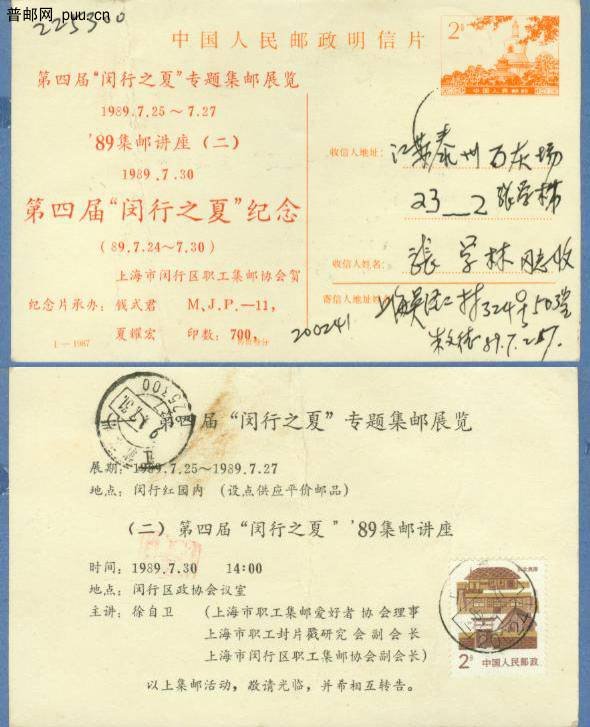 普邮网 puu.cn
225300
中国人民邮政明信片
2分
中国人民邮政
第四届“闵行之夏”专题集邮展览
1989.7.25～7.27
'89集邮讲座（二）
1989.7.30
第四届“闵行之夏”纪念
(89.7.24～7.30)
上海市闵行区职工集邮协会贺
纪念片承办：钱式君 M.J.P.—11,
夏耀宏 印数：700,
1—1987
收信人地址：江苏泰州
23—2 张学林
收信人姓名：張学林同志收
寄信人地址
324号503室
200241
89.7.25
第四届“闵行之夏”专题集邮展览
225300
展期：1989.7.25～1989.7.27
地点：闵行红园内（设点供应平价邮品）
（二）第四届“闵行之夏”'89集邮讲座
时间：1989.7.30 14:00
地点：闵行区政协会议室
主讲：徐自卫（上海市职工集邮爱好者协会理事
上海市职工封片戳研究会副会长
上海市闵行区职工集邮协会副会长)
以上集邮活动，敬请光临，并希相互转告。
2分 中国人民邮政